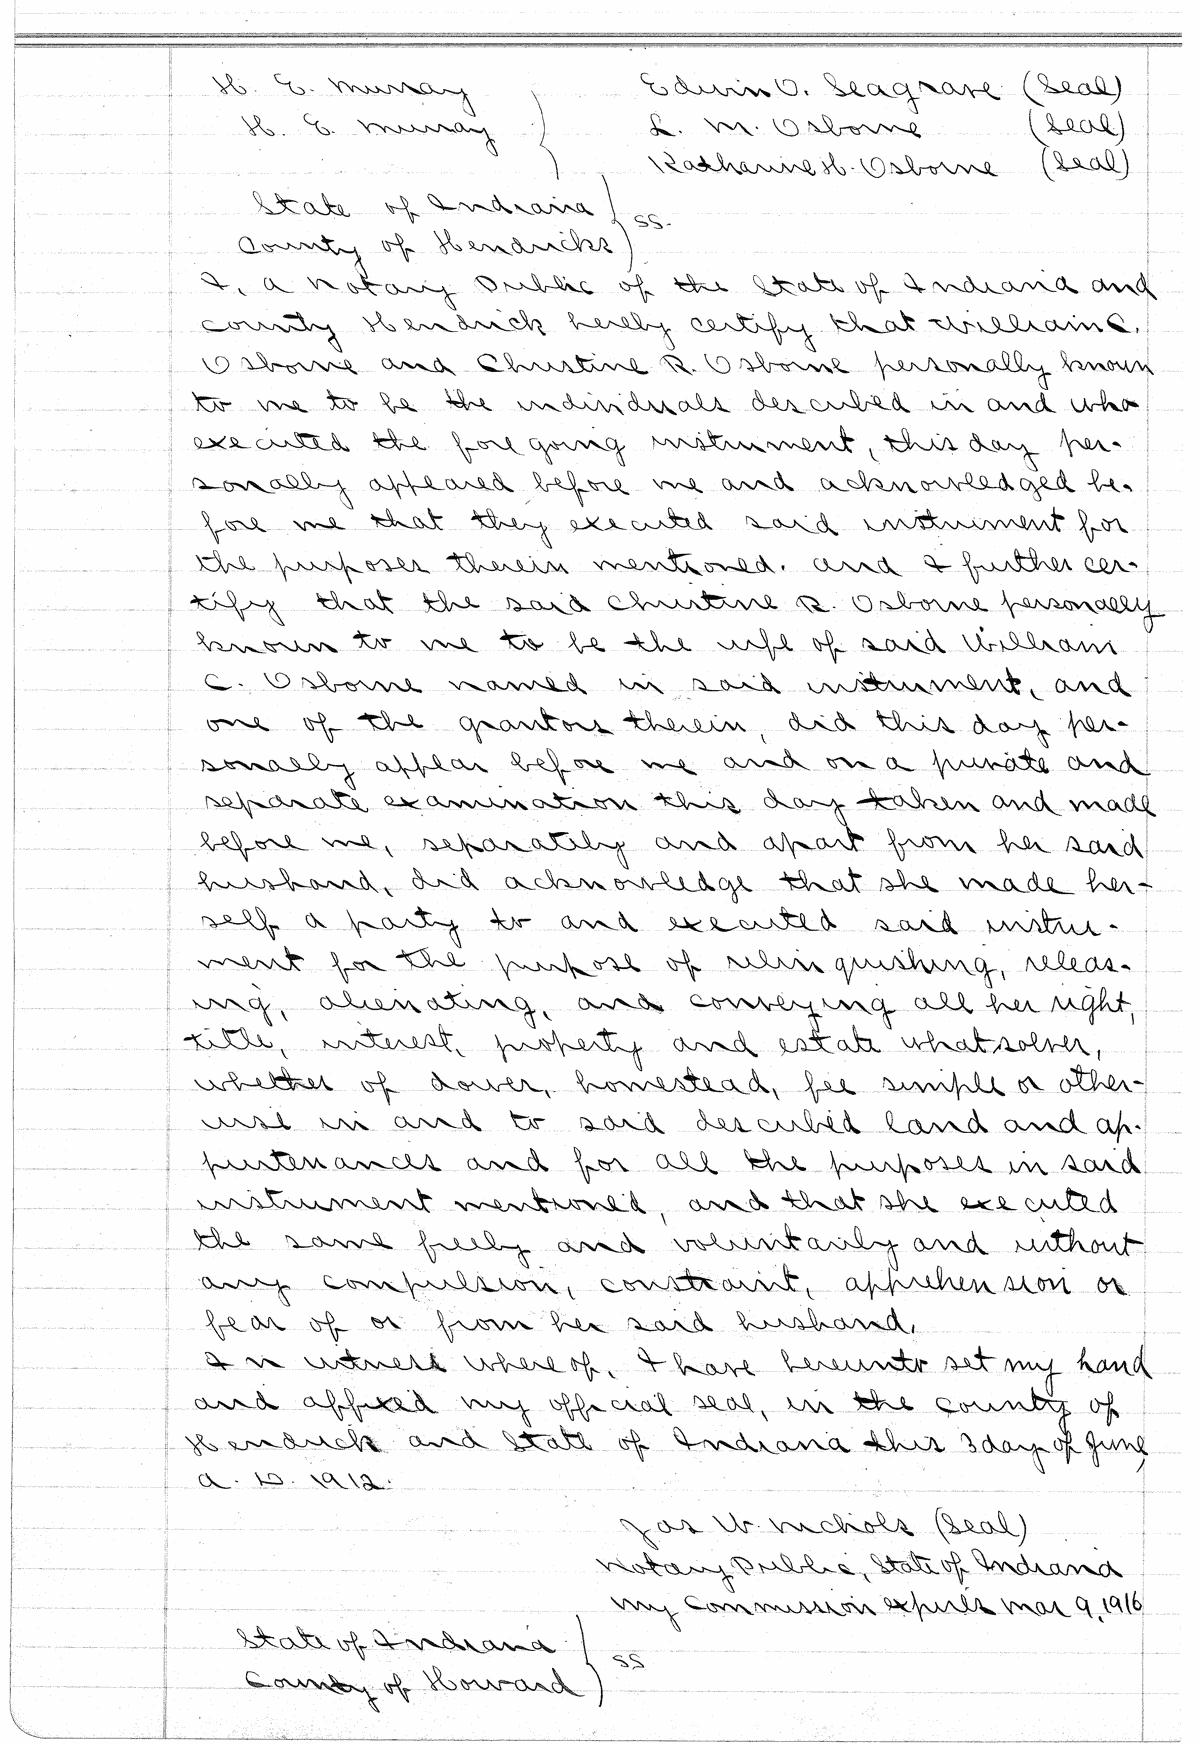 H. E. Murray } Edwin O. Seagrave (Seal)
H. E. Murray L. M. Osborne (Seal)
Katharine H. Osborne (Seal)
State of Indiana } ss.
County of Hendricks
I, a Notary Public of the State of Indiana and
County Hendrick hereby certify that William C.
Osborne and Christine R. Osborne personally known
to me to be the individuals described in and who
executed the foregoing instrument, this day per-
sonally appeared before me and acknowledged be-
fore me that they executed said instrument for
the purposes therein mentioned. and I further cer-
tify that the said Christine R. Osborne personally
known to me to be the wife of said William
C. Osborne named in said instrument, and
one of the grantors therein, did this day per-
sonally appear before me and on a private and
separate examination this day taken and made
before me, separately and apart from her said
husband, did acknowledge that she made her-
self a party to and executed said instru-
ment for the purpose of relinquishing, releas-
ing, alienating, and conveying all her right,
title, interest, property and estate whatsoever,
whether of dower, homestead, fee simple or other-
wise in and to said described land and ap-
purtenances and for all the purposes in said
instrument mentioned, and that she executed
the same freely and voluntarily and without
any compulsion, constraint, apprehension or
fear of or from her said husband.
In witness whereof, I have hereunto set my hand
and affixed my official seal, in the county of
Hendrick and State of Indiana this 3 day of June
A. D. 1912.
Jas W. Nichols (Seal)
Notary Public, State of Indiana
My Commission expires Mar 9, 1916
State of Indiana } ss
County of Howard